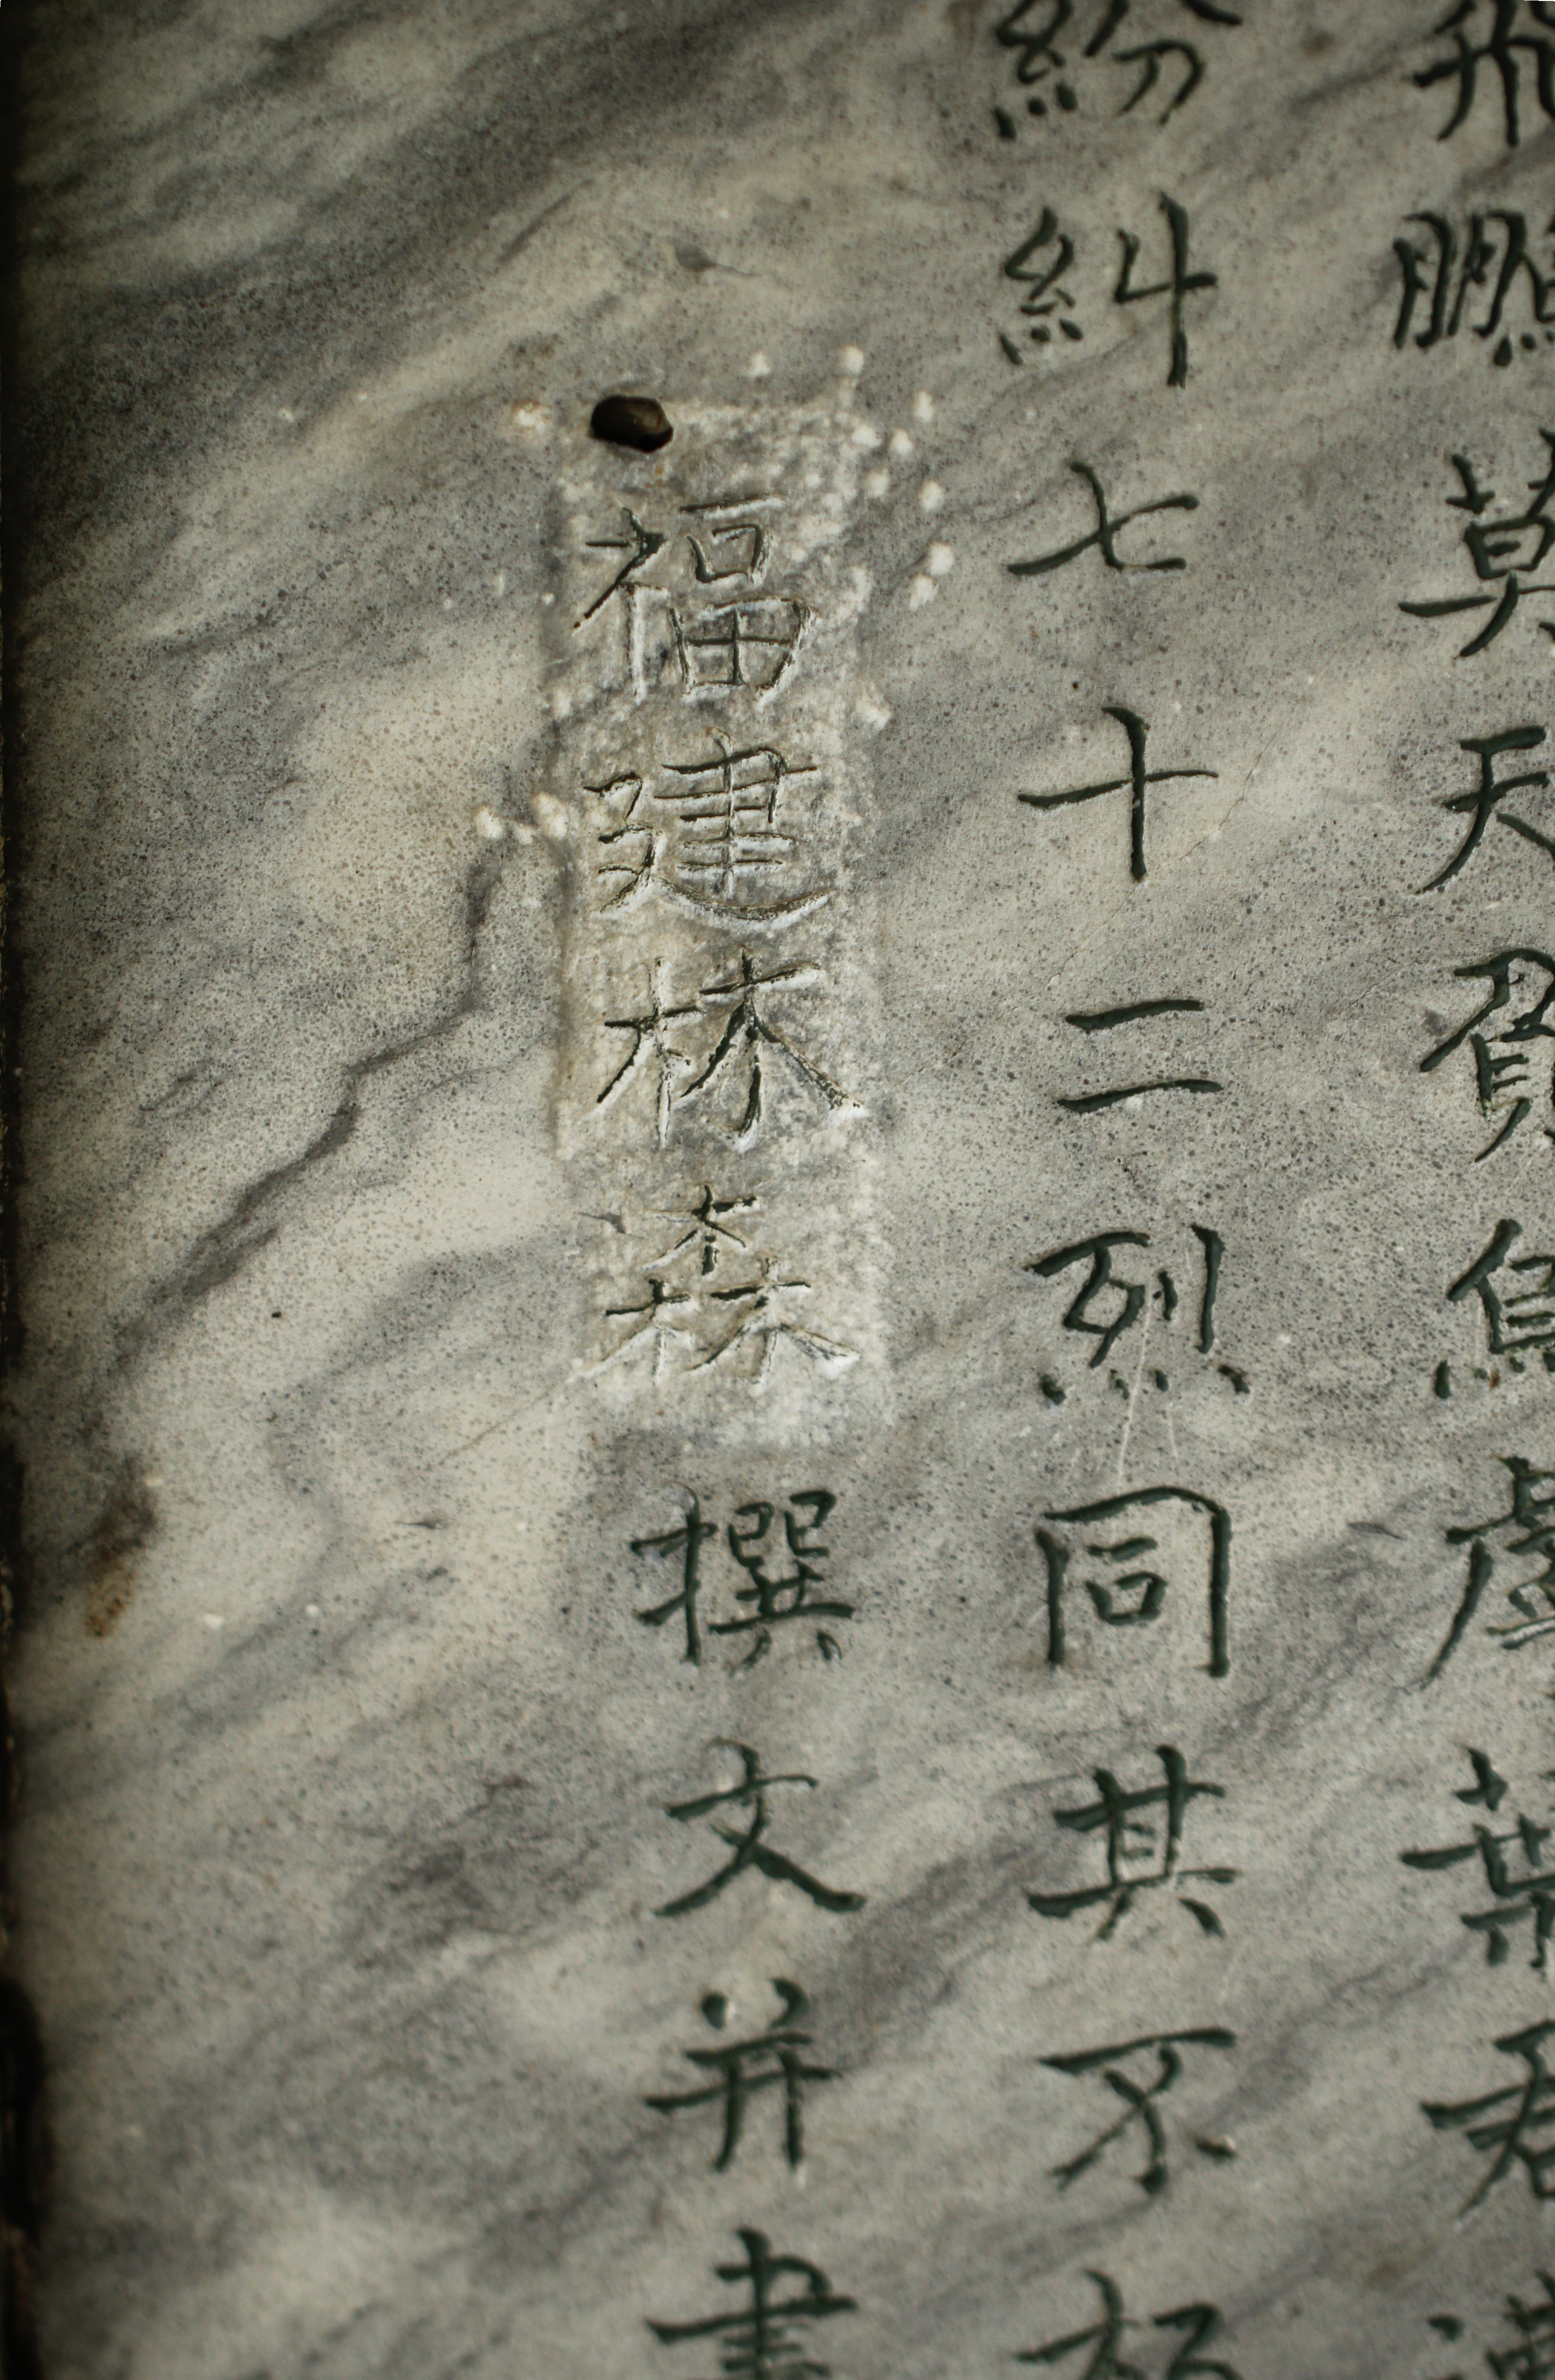 飛鵬莫天貧鳥虛葉君
紛糾七十二烈同其不朽
福建林森撰文并書